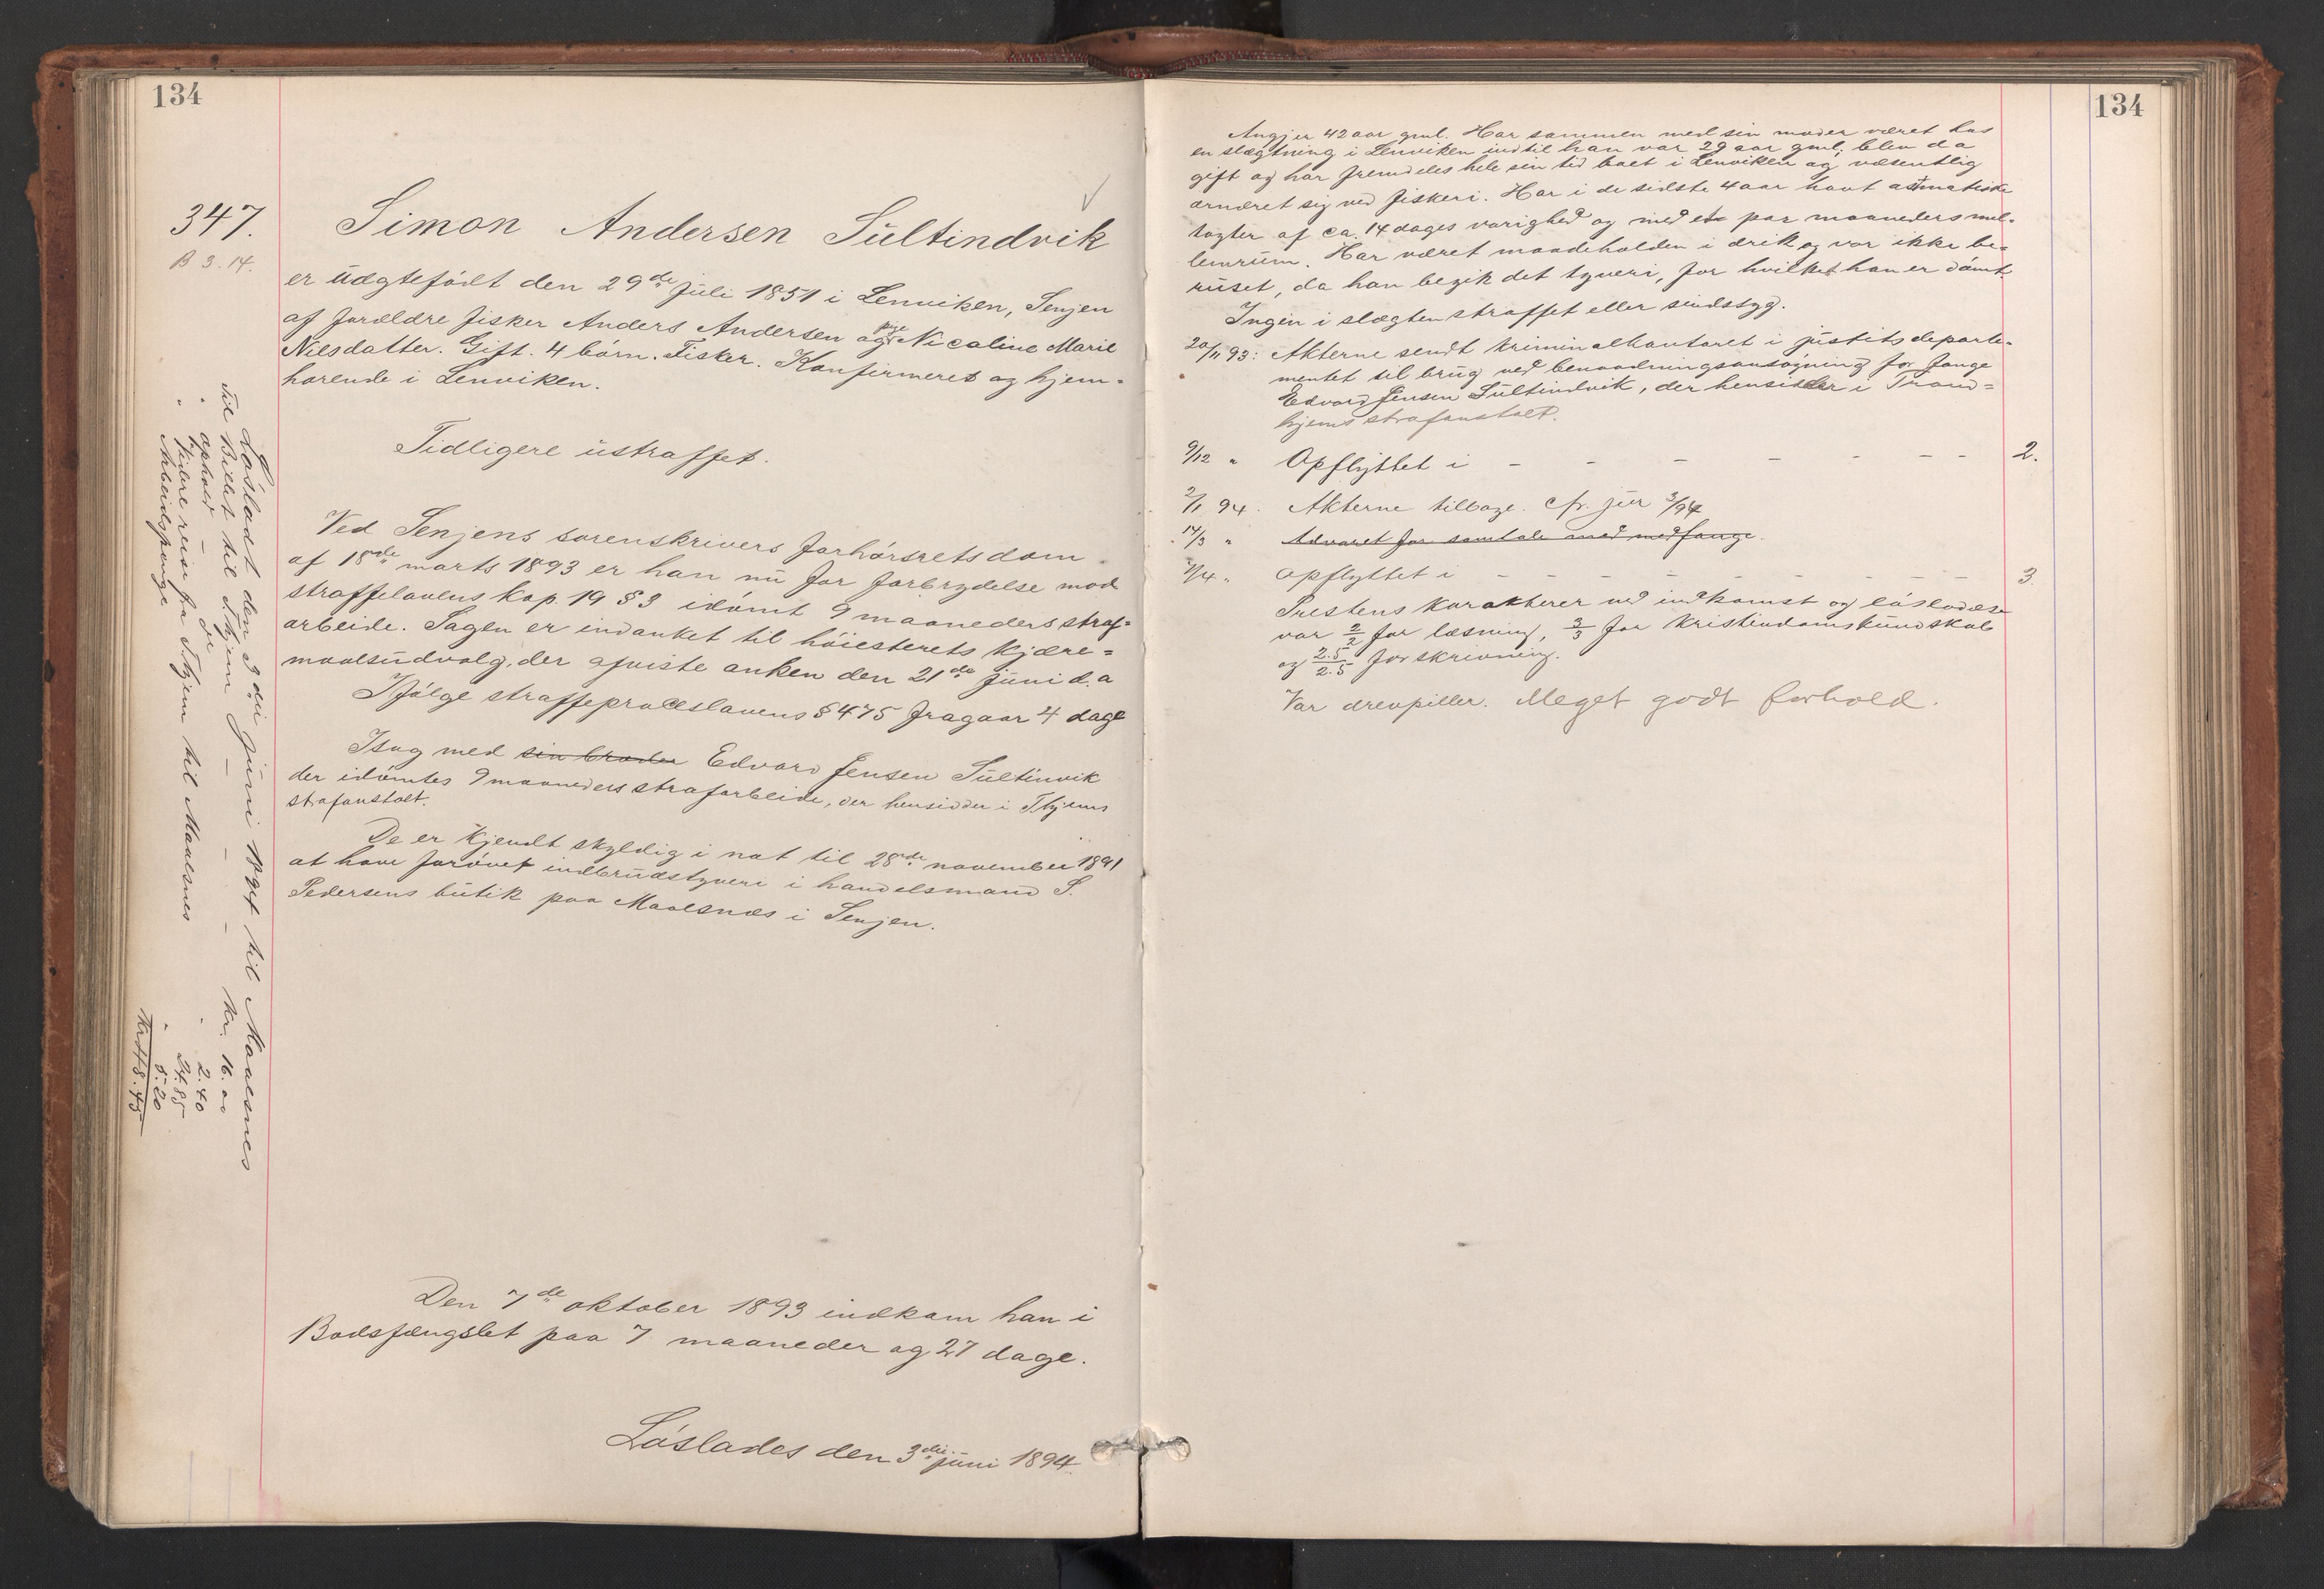 134
347.
B 3.14.
Simon Andersen Sultindvik
er uægtefödt den 29de juli 1851 i Lenviken, Senjen
af forældre fisker Anders Andersen og pige Nicoline Marie
Nilsdatter. Gift. 4 börn. Fisker. Konfirmeret og hjem=
hørende i Lenviken.
Tidligere ustraffet.
Ved Senjens sorenskrivers forhörsretsdom
af 18de marts 1893 er han nu for forbrydelse mod
straffelovens kap. 19 § 3 idömt 9 maaneders straf=
arbeide. Sagen er indanket til höiesterets kjære=
maalsudvalg, der afviste anken den 21de juni d.a
Ifölge straffeproceslovens § 475 fragaar 4 dage
Isag med sin broder Edvard Jensen Sultinvik
der idömtes 9 maaneders strafarbeide, der hensidder i Thjems
strafanstalt.
De er kjendt skyldig i nat til 28de november 1891
at have forövet indbrudstyveri i handelsmand S.
Pedersens butik paa Maalsnæs i Senjen.
Den 7de oktober 1893 indkom han i
Bodsfængslet paa 7 maaneder og 27 dage.
Löslades den 3die juni 1894.
Lösladt den 3die juni 1894 til Maalsnes
Til Billet til T.hjem — — — Kr. 16.00
" ophold — do " 2.40
" videre reise fra T.hjem til Maalsnes 24.85
Arbeidspenge " 5.20
Kr. 48.45
134
Angjer 42 aar gml. Har sammen med sin moder været hos
en slægtning i Lenviken indtil han var 29 aar gml; blev da
gift og har fremdeles hele sin tid boet i Lenviken og væsentlig
ernæret sig ved fiskeri. Har i de sidste 4 aar havt astmatiske
togter af ca. 14 dages varighed og med et par maaneders mel=
lemrum. Har været maadeholden i drik og var ikke be=
ruset, da han begik det tyveri, for hvilket han er dömt
Ingen i slægten straffet eller sindssyg.
20/11 93: Akterne sendt kriminalkontoret i justitsdeparte=
mentet til brug ved benaadningsansögning for fange
Edvard Jensen Sultindvik, der hensidder i Trond=
hjems strafanstalt.
9/12 " Opflyttet i - - - - - - - 2.
2/1 94. Akterne tilbage. cfr. jur 3/94
14/3 " Advaret for samtale med medfange.
2/4 " Opflyttet i - - - - - - - - 3.
Prestens karakterer ved indkomst og löslade​lse
var 2/2 for læsning, 3/3 for kristendomskundskab
og 2.5/2.5 for skrivning.
Var drevpiller. Meget godt forhold.